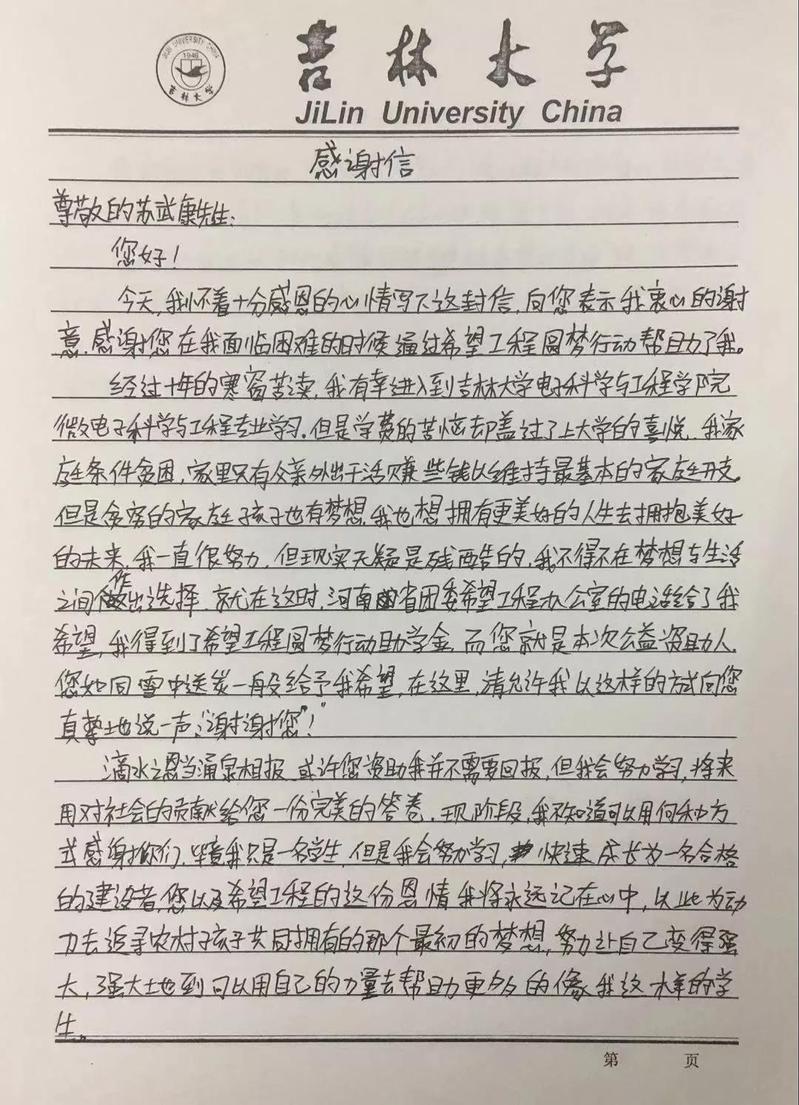 JILIN UNIVERSITY CHINA
1946
吉林大学
吉林大学
JiLin University China
感谢信
尊敬的苏武康先生:
您好!
今天,我怀着十分感恩的心情写下这封信,向您表示我衷心的谢
意.感谢您在我面临困难的时候通过希望工程圆梦行动帮助了我。
经过十年的寒窗苦读,我有幸进入到吉林大学电子科学与工程学院
微电子科学与工程专业学习.但是学费的苦恼却盖过了上大学的喜悦.我家
庭条件贫困,家里只有父亲外出干活赚些钱以维持最基本的家庭开支.
但是贫穷的家庭孩子也有梦想.我也想拥有更美好的人生去拥抱美好
的未来.我一直很努力,但现实无疑是残酷的,我不得不在梦想与生活
之间作出选择.就在这时,河南省团委希望工程办公室的电话给了我
希望,我得到了希望工程圆梦行动助学金.而您就是本次公益资助人.
您如同雪中送炭一般给予我希望.在这里,请允许我以这样的方式向您
真挚地说一声:"谢谢您"!
滴水之恩当涌泉相报.或许您资助我并不需要回报,但我会努力学习,将来
用对社会的贡献给您一份完美的答卷.现阶段,我不知道可以用何种方
式感谢你们,毕竟我只是一名学生,但是我会努力学习,快速成长为一名合格
的建设者,您以及希望工程的这份恩情我将永远记在心中,以此为动
力去追寻农村孩子共同拥有的那个最初的梦想,努力让自己变得强
大,强大地到可以用自己的力量去帮助更多的像我这样的学
生。
第 页